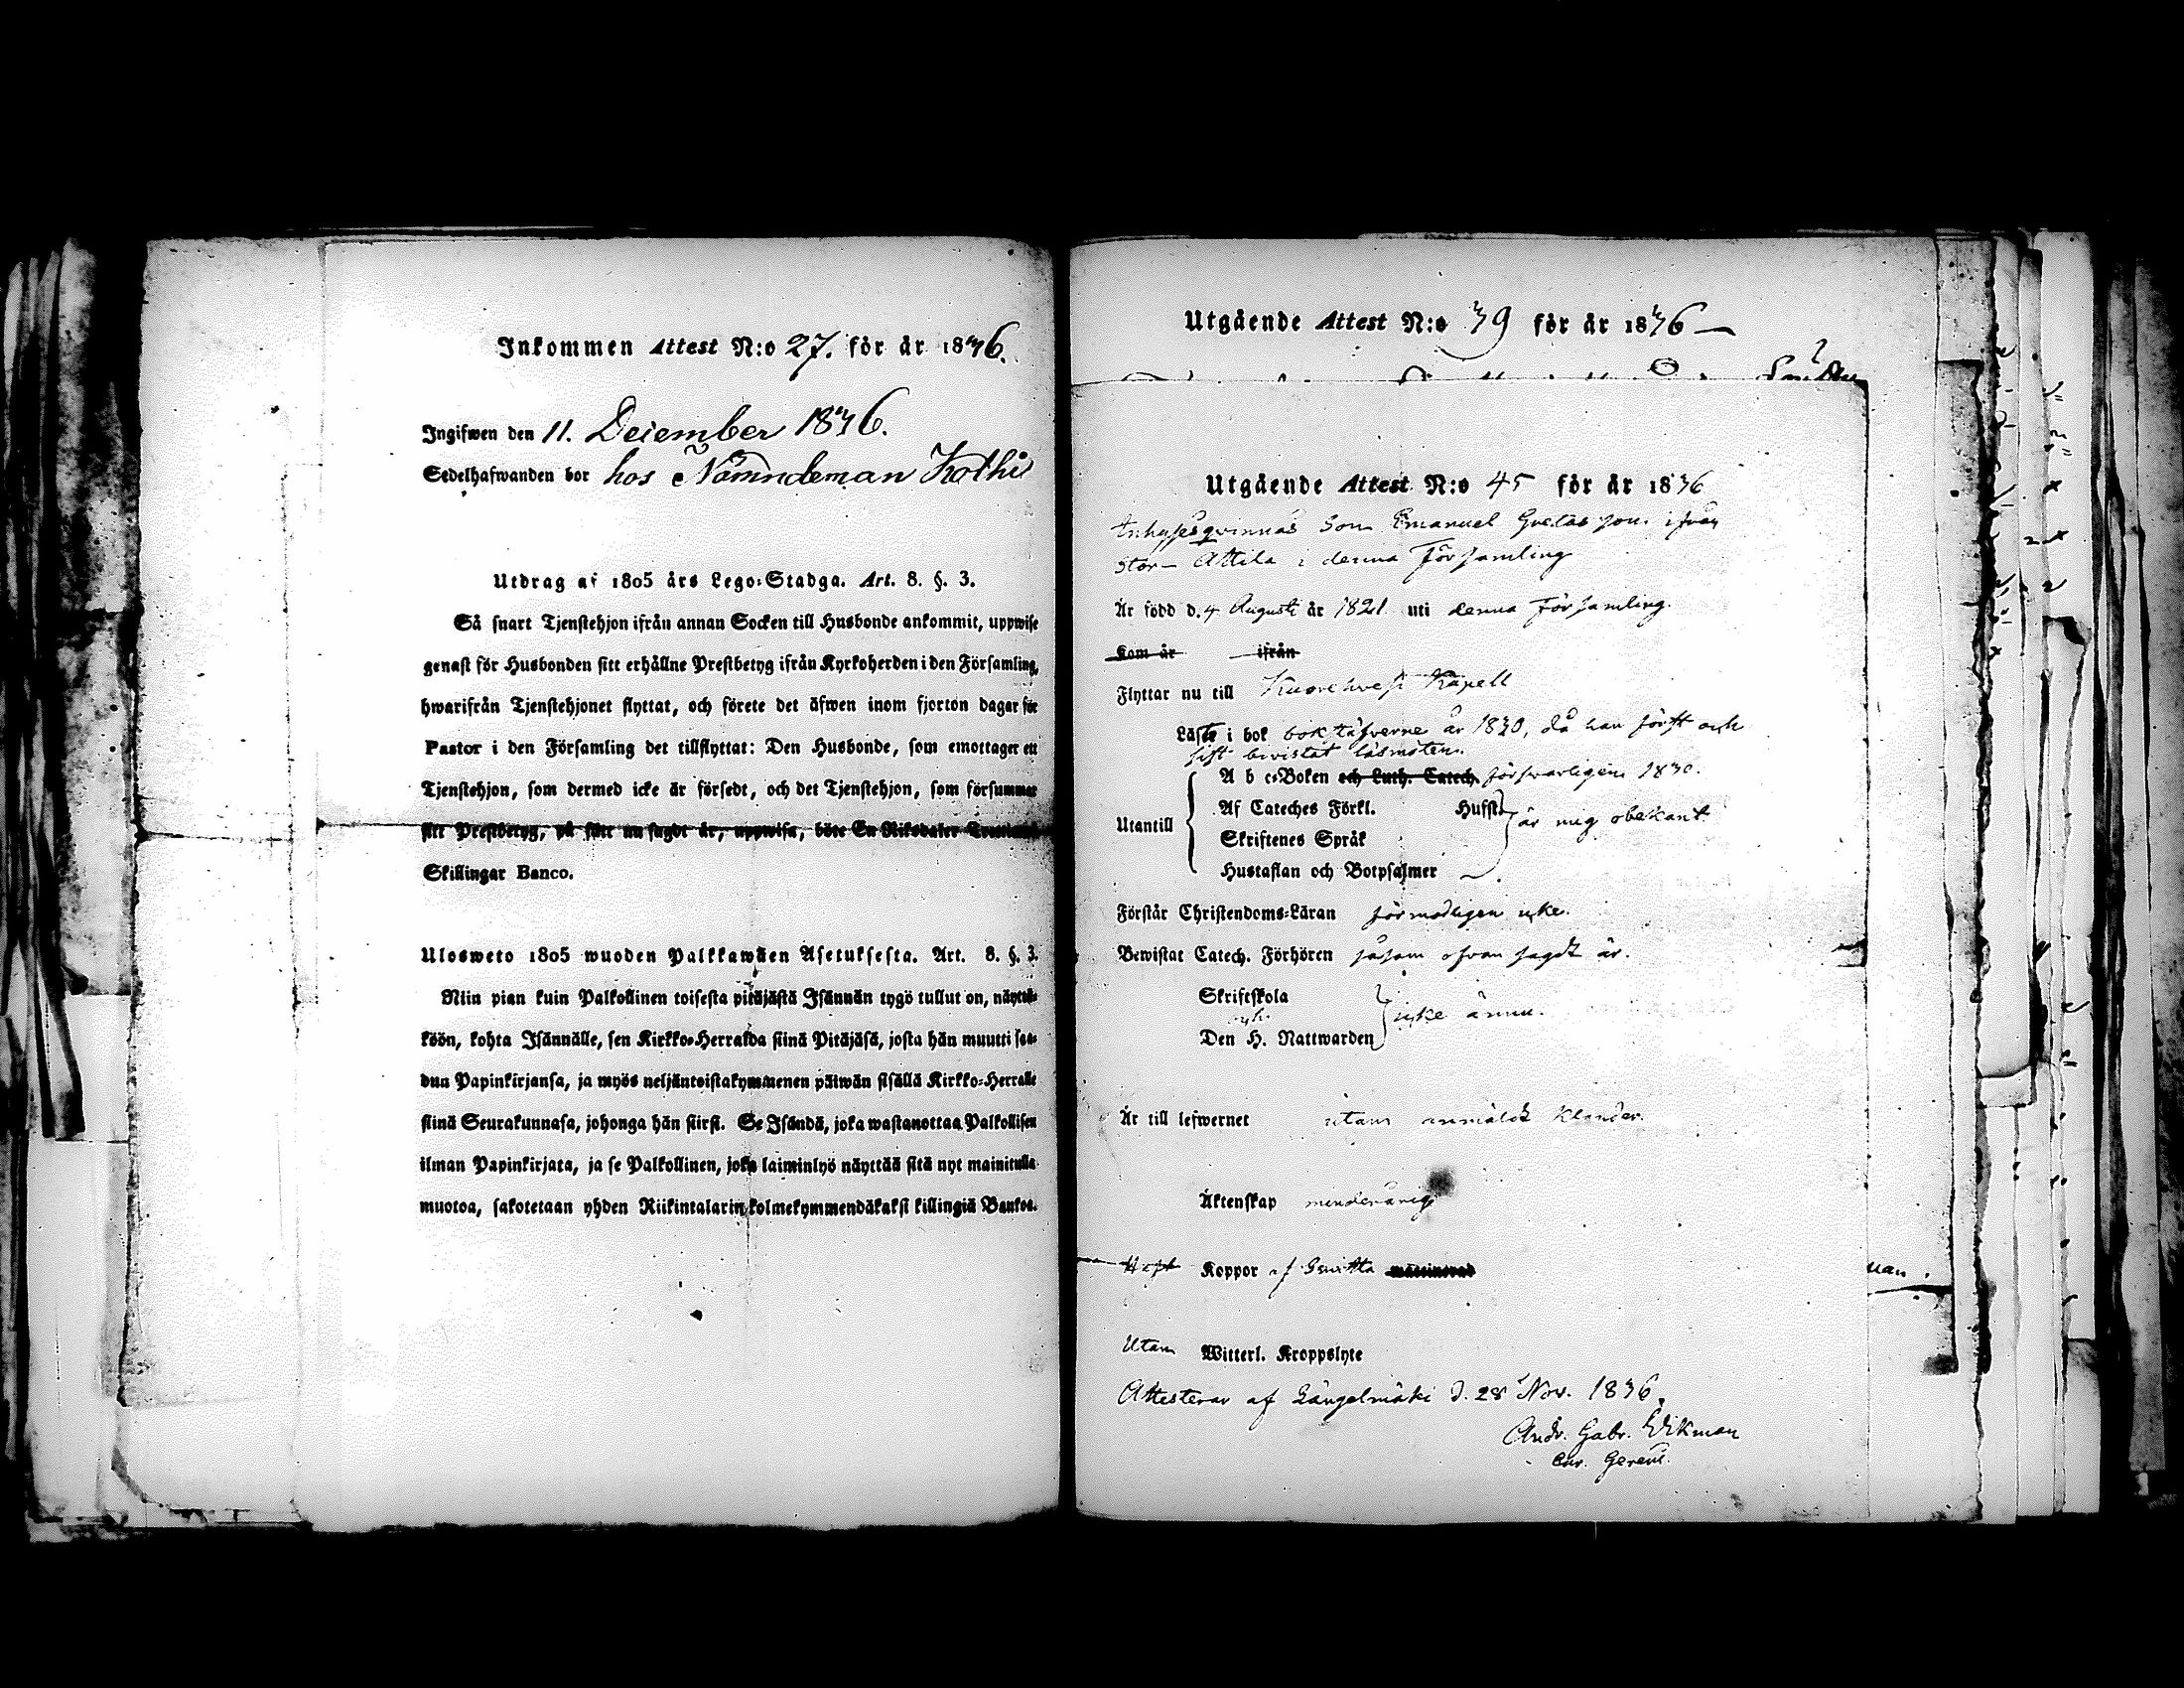 Inkommen Attest N:o 27. för år 1836.
Ingifwen den 11. December 1836.
Sedelhafwanden bor hos Nämndeman
Utdrag af 1805 års Lego-Stadga. Art. 8. §. 3.
Så snart Tjenstehjon ifrån annan Socken till Husbonde ankommit, uppwise
genast för Husbonden sitt erhållne Prestbetyg ifrån Kyrkoherden i den Församling,
hwarifrån Tjenstehjonet flyttat, och förete det äfwen inom fjorton dagar för
Pastor i den Församling det tillflyttat: Den Husbonde, som emottager ett
Tjenstehjon, som dermed icke är försedt, och det Tjenstehjon, som försummar
sitt Prestbetyg, på sätt nu sagdt är, uppwisa, böte En Riksdaler Trettiotwå
Skillingar Banco.
Ulosweto 1805 wuoden Palkkawäen Asetuksesta. Art. 8. §. 3.
Niin pian kuin Palkollinen toisesta pitäjästä Isännän tygö tullut on, näyttä-
köön, kohta Isännälle, sen Kirkko-Herralda siinä Pitäjäsä, josta hän muutti saa-
dun Papinkirjansa, ja myös neljäntoistakymmenen päiwän sisällä Kirkko-Herralle
siinä Seurakunnasa, johonga hän siirsi. Se Isändä, joka wastanottaa Palkollisen
ilman Papinkirjata, ja se Palkollinen, joka laiminlyö näyttää sitä nyt mainitulla
muotoa, sakotetaan yhden Riikintalarin kolmekymmendäkaksi killingiä Bankoa.
Utgående Attest N:o 39 för år 1836
Utgående Attest N:o 45 för år 1836
Inhysesqvinnas Son Emanuel Gretas son ifrån
Stor-Attila i denna Församling
Är född d. 4 Augusti år 1821 uti denna Församling.
Kom år ifrån
Flyttar nu till Kuorehvesi Kapell
Läste i bok bokstäfverne år 1830, då han först och
sist bevistat läsmöten.
A b c-Boken och Luth. Catech. försvarligen 1830.
Af Cateches Förkl. Hufst är mig obekant
Utantill
Skriftenes Språk
Hustaflan och Botpsalmer
Förstår Christendoms-Läran förmodligen icke.
Bewistat Catech. Förhören såsom ofvan sagdt är.
Skriftskola
och icke ännu.
Den H. Nattwarden
Är till lefwernet utan anmäldt klander.
Äktenskap minderårig
Haft Koppor af Smitta waccinerad
Utan Witterl. Kroppslyte
Attesterar af Längelmäki d. 28 Nov. 1836.
Andr. Gabr. Wikman
Cur. Gerens.